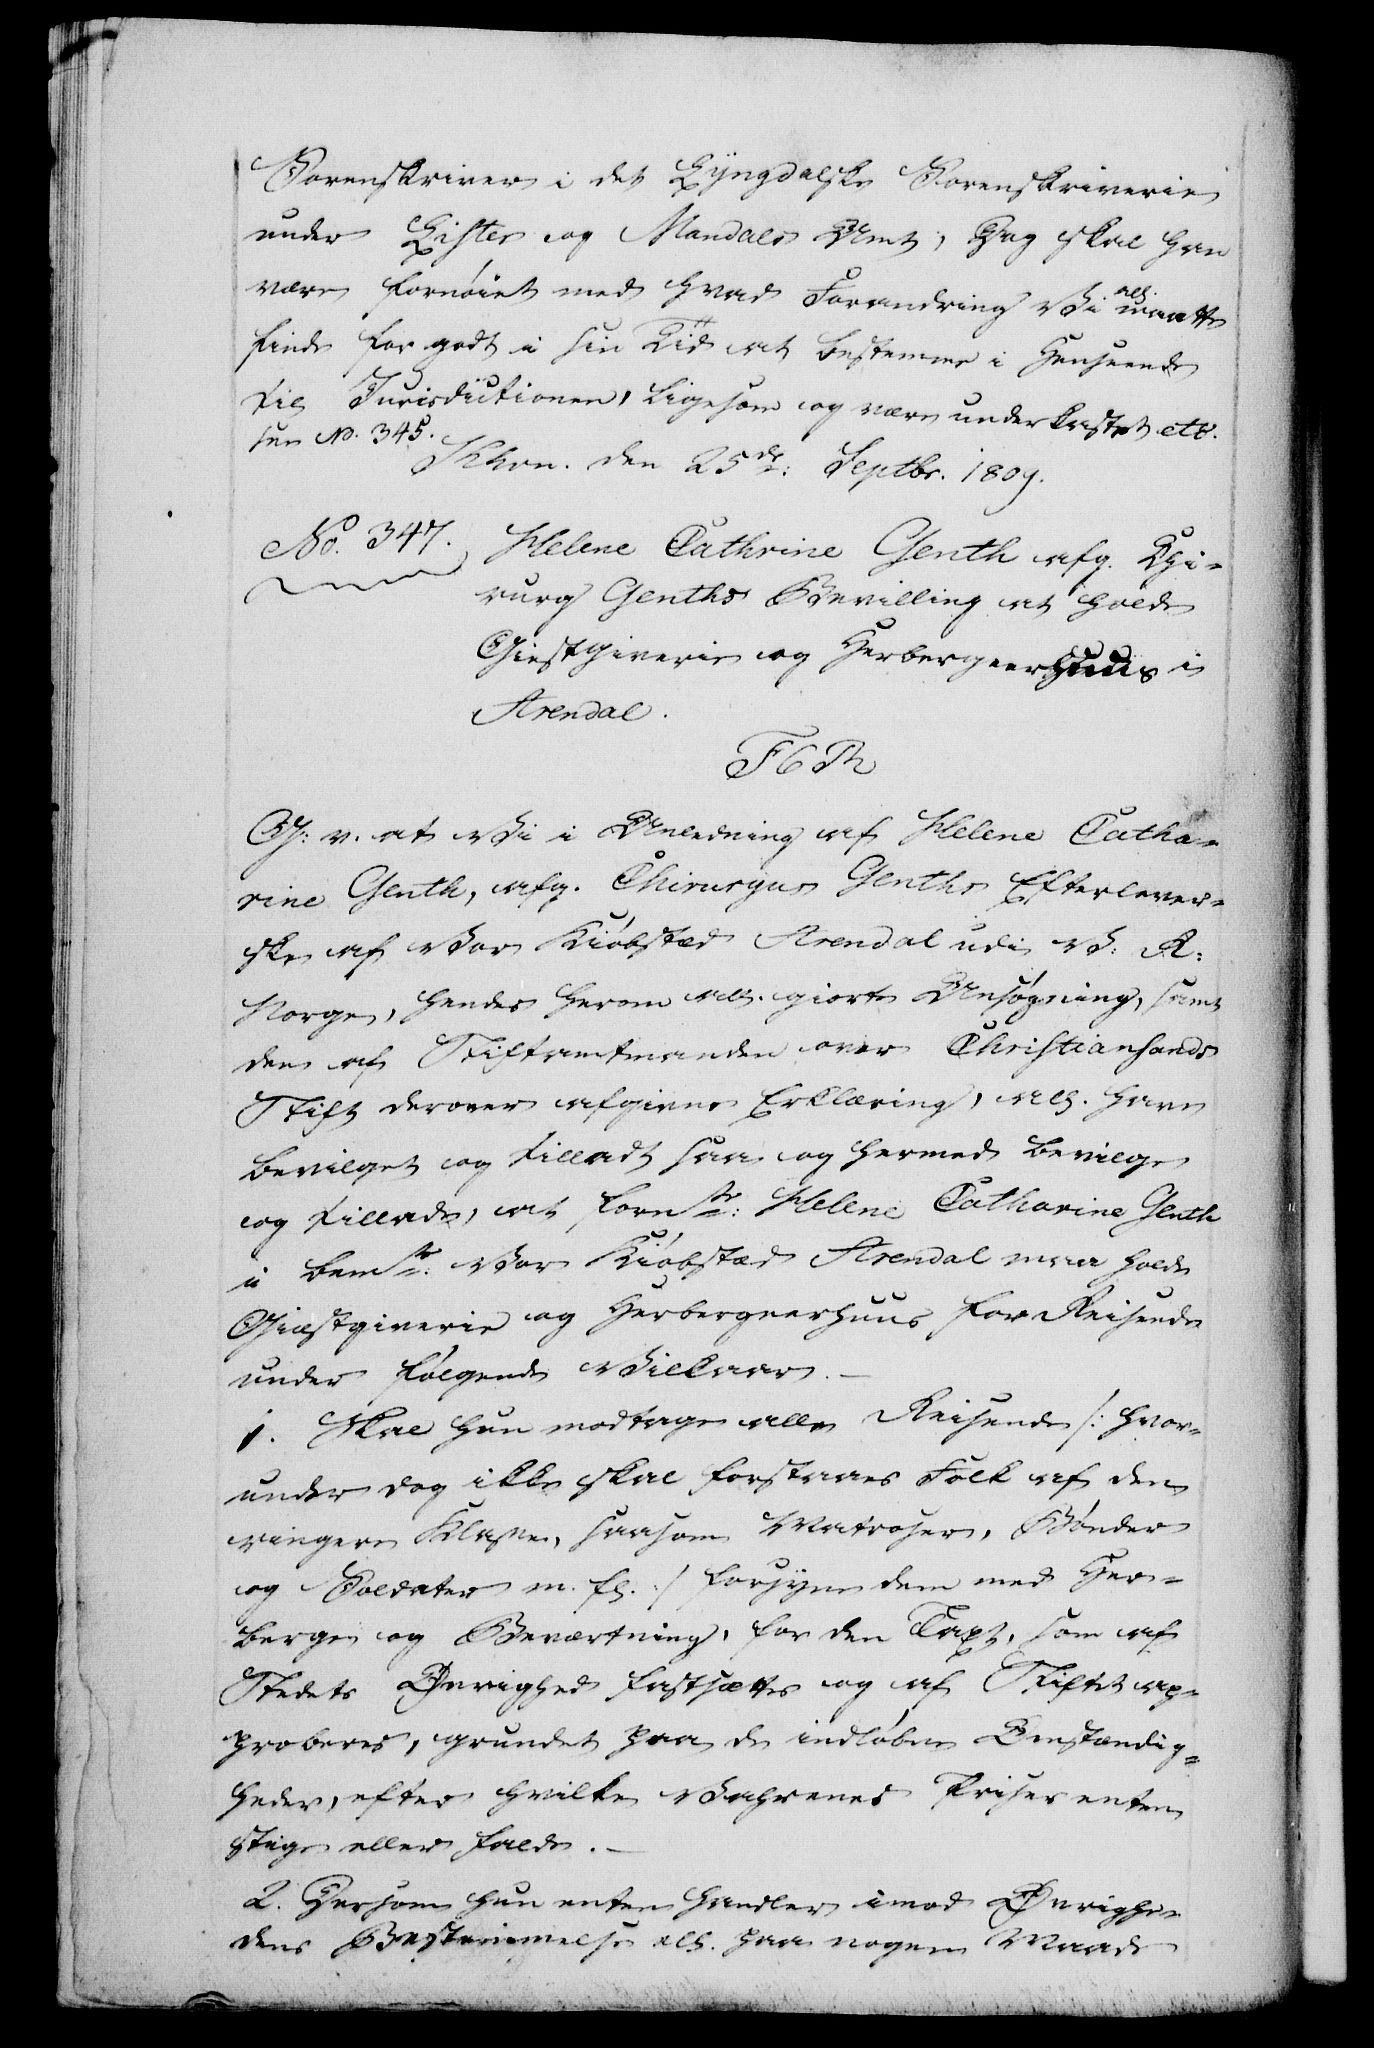 Sorenskriver i det Lyngdalske Sorenskriverie
under Lister og Mandals Amt, Dog skal han
være fornöiet med hvad Forandring Vi all. maatte
finde for godt i sin Tiid at bestemme i Henseende
til Jurisdictionen, ligesom og være underkastet etc.
see No. 345.
Khvn. den 25de: Septbr. 1809.
No. 347.
Helene Cathrine Genth afg. Chi-
rurg Genths Bevilling at holde
Giestgiverie og Herbergeerhuus i
Arendal.
F6R
G: v. at Vi i Anledning af Helene Catha-
rine Genth, afg. Chirurgus Genths Efterlever-
ske af Vor Kiöbstæd Arendal udi V: R:
Norge, hendes herom all. giorte Ansögning, samt
den af Stiftamtmanden over Christiansands
Stift derover afgivne Erklæring, all. have
bevilget og tilladt saa og hermed bevilge
og tillade, at fornte: Helene Catharine Genth
i bemte: Vor Kiöbstæd Arendal maa holde
Giæstgiverie og Herbergeerhuus for Reisende
under fölgende Vilkaar. —
1. Skal hun modtage alle Reisende /: hvor-
under dog ikke skal forstaaes Folk af den
ringere Klasse, saasom Matroser, Bönder
og Soldater m. fl. :/ forsyne dem med Her-
berge og Beværtning, for den Taxt, som af
Stedets Øvrighed fastsættes og af Stiftet ap-
proberes, grundet paa de indlöbne Omstændig-
heder, efter hvilke Vahrenes Priser enten
stige eller falde. —
2. Dersom hun enten handler imod Øvrighe-
dens Bestemmelse ell. paa nogen Maade